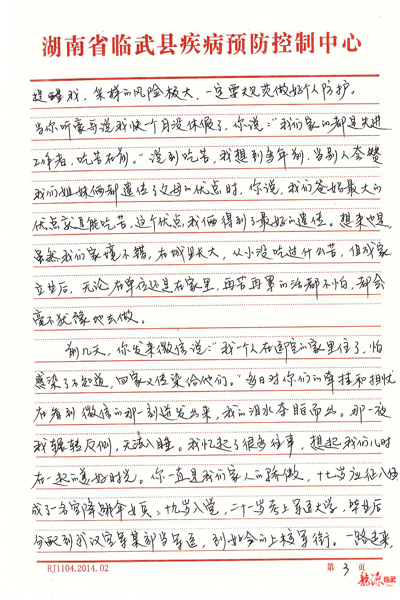 湖南省临武县疾病预防控制中心
提醒我,采样的风险极大,一定要规范做好个人防护。
当你听豪哥说我快一个月没休假了,你说:"我们家的都是先进
工作者,吃苦在前。"说到吃苦,我想到多年前,当别人夸赞
我们姐妹俩都遗传了父母的优点时,你说,我们爸妈最大的
优点就是能吃苦,这个优点我俩得到了最好的遗传。想来也是,
虽然我们家境不错,在城里长大,从小没吃过什么苦,但成家
立业后,无论在单位还是在家里,再苦再累的活都不怕,都会
毫不犹豫地去做。
前几天,你发来微信说:"我一个人在医院的家里住了,怕
感染了不知道,回家又传染给他们。"每日对你们的牵挂和担忧
在看到微信的那一刻迸发出来,我的泪水夺眶而出。那一夜
我辗转反侧,无法入睡。我忆起了很多往事,想起我们儿时
在一起的美好时光。你一直是我们家人的骄傲,十七岁应征入伍
成了一名空降兵女兵,十九岁入党,二十一岁考上军医大学,毕业后
分配到武汉空军某部当军医,到如今的上校军衔。一路走来,
RJ1104.2014.02
第 3 页
临武